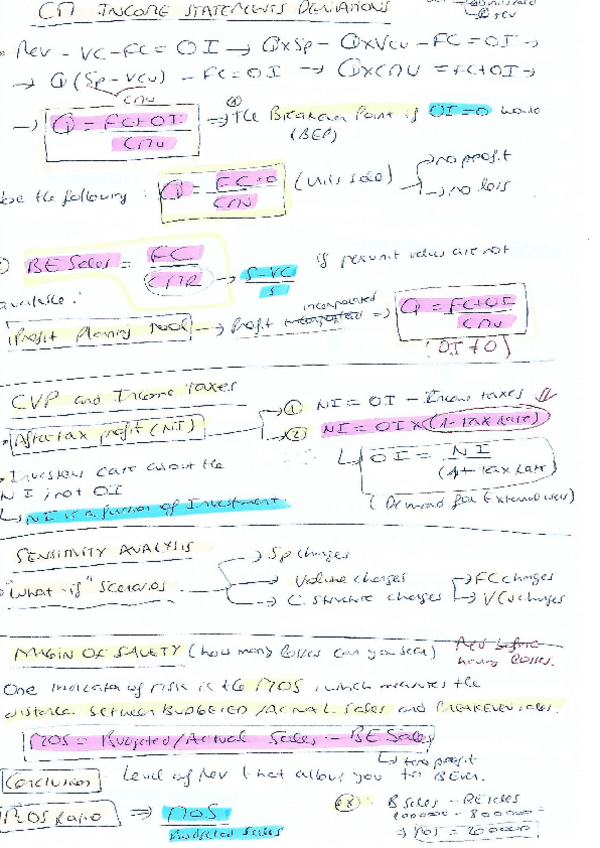 CM INCOME STATEMENTS DEVIATIONS
Rev - VC - FC = OI → Q x Sp - Q x Vcu - FC = OI →
→ Q (Sp - Vcu) - FC = OI → Q x CMu = FC + OI →
CMu
→ Q = FC + OI / CMu ⇒ The Breakeven Point if OI = 0 would
(BEP)
the following : Q = FC + 0 / CMU (Units sold) → no profit
→ no loss
BE Sales = FC / CMR → S - VC / S if per unit values are not
available :
Profit Planning → Profit incorporated ⇒ Q = FC + OI / CMU
(OI ≠ 0)
CVP and Income Taxes
After tax profit (NI) → ① NI = OI - Income taxes
→ ② NI = OI x (1 - tax rate)
Investors care about the
NI, not OI
OI = NI / (1 - tax rate)
NI is a
of Investment.
SENSITIVITY ANALYSIS
"What-if" Scenarios → Sp changes
→ Volume changes → FC changes
→ C. Structure changes → VCu changes
MARGIN OF SAFETY (how many losses can you
Rev before
having losses.
One indicator of risk is the MOS, which measures the
distance between BUDGETED / ACTUAL Sales and BREAKEVEN sales.
MOS = Budgeted / Actual Sales - BE Sales
→ zero profit
Conclusion: Level of Rev that allows you to BEven.
MOS Ratio ⇒ MOS / Budgeted Sales
EX: B Sales - BE sales
1000000 - 800000 =
→ MOS = 200000